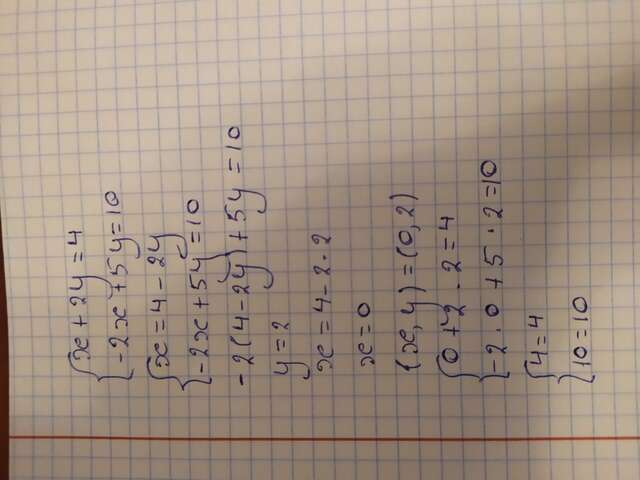 {x + 2y = 4
{-2x + 5y = 10
{x = 4 - 2y
{-2x + 5y = 10
-2(4 - 2y) + 5y = 10
y = 2
x = 4 - 2 · 2
x = 0
(x, y) = (0, 2)
{0 + 2 · 2 = 4
{-2 · 0 + 5 · 2 = 10
{4 = 4
{10 = 10